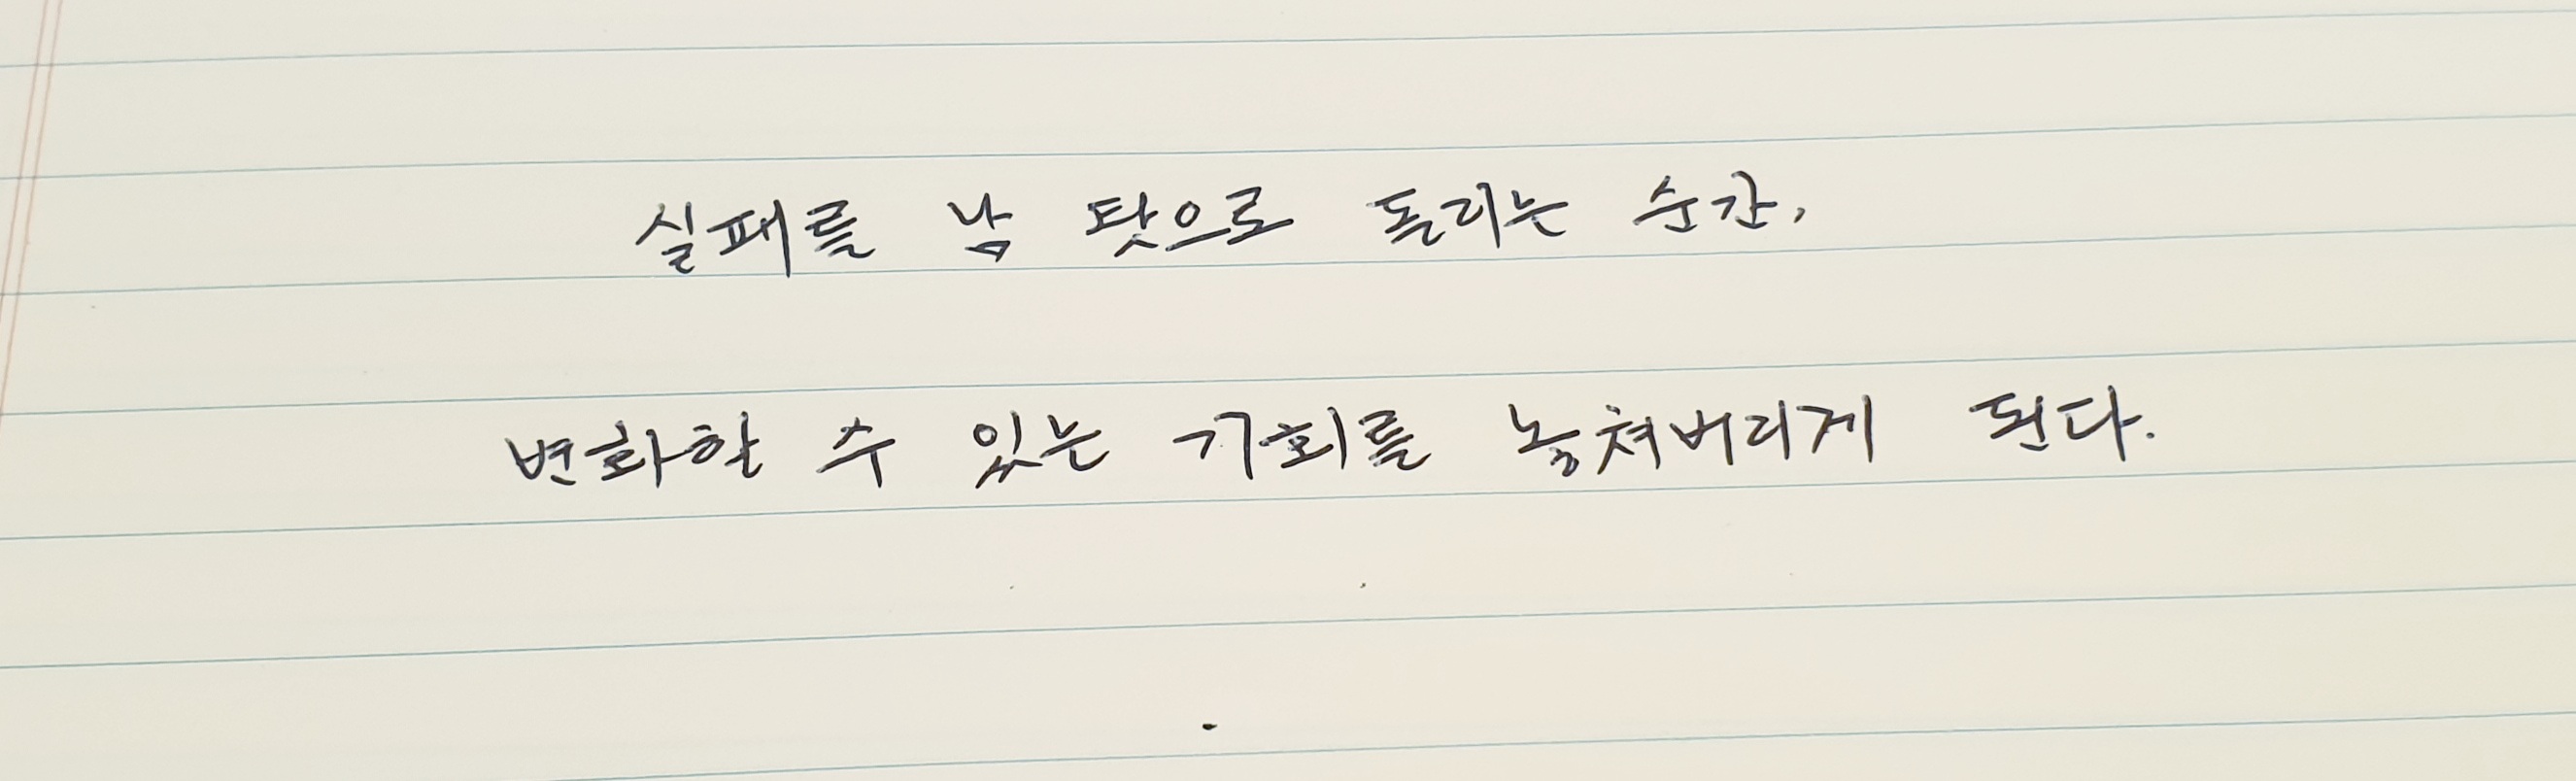 실패를 남 탓으로 돌리는 순간,
변화할 수 있는 기회를 놓쳐버리게 된다.